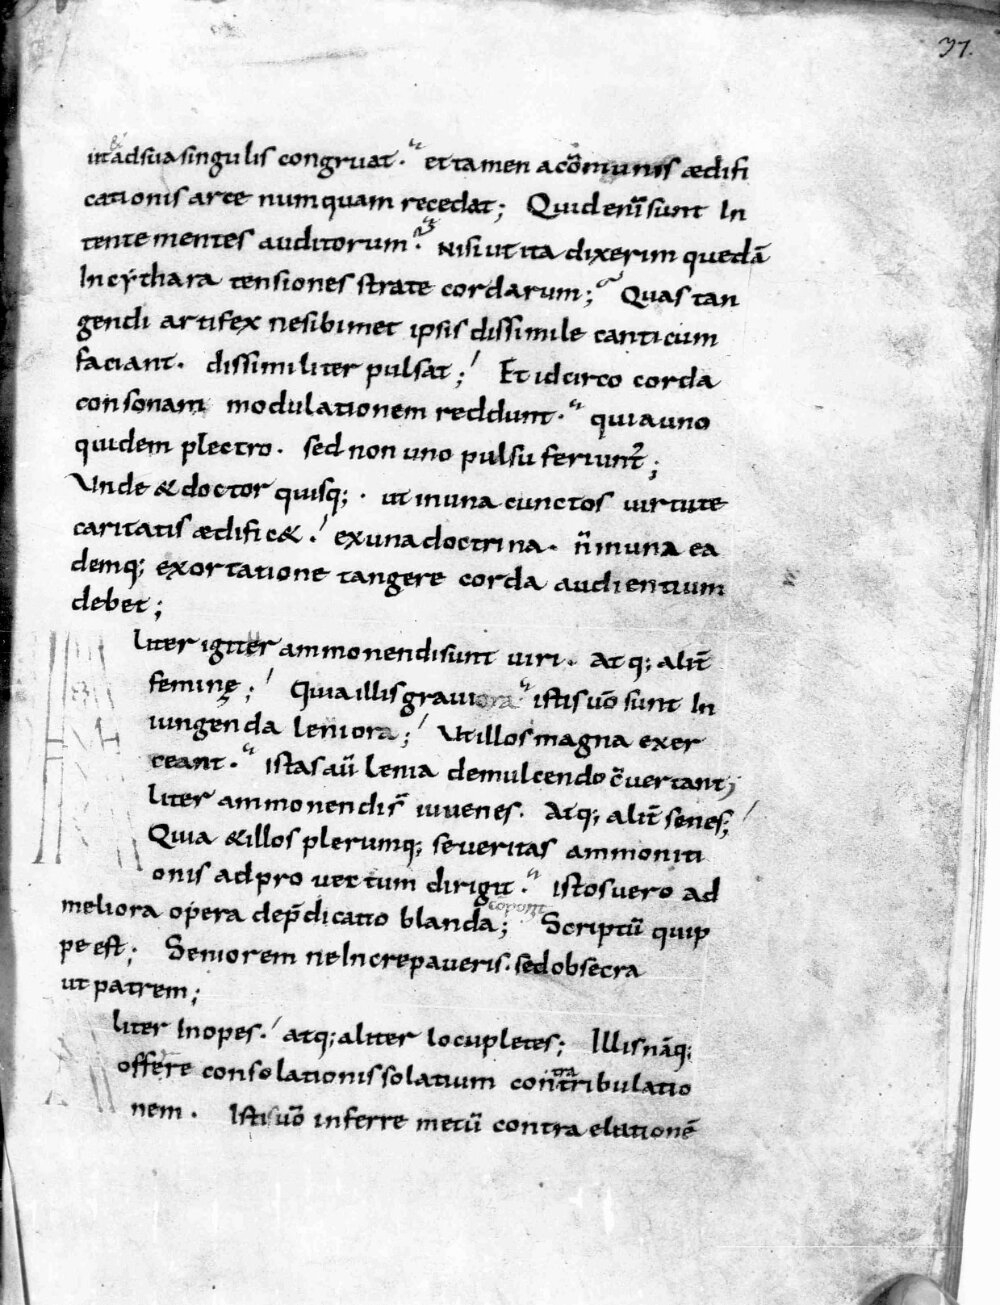 37.
ut & ad sua singulis congruat. et tamen a cōmunis ædifi
cationis arce numquam recedat; Quid enī sunt In
tente mentes auditorum. Nisi ut ita dixerim quedā
In cẏthara tensiones strate cordarum; Quas tan
gendi artifex ne sibimet ipsis dissimile canticum
faciant. dissimiliter pulsat; Et idcirco corda
consonam modulationem reddunt. quia uno
quidem plectro. sed non uno pulsu feriunt̄;
Unde & doctor quisq;. ut in una cunctos uirtute
caritatis ædific&. ex una doctrina. n̄ in una ea
demq; exortatione tangere corda audientium
debet;
liter igitur ammonendi sunt uiri. Atq; alit̄
feminę; Quia illis grauiora istis uō sunt In
iungenda leniora; Ut illos magna exer
ceant. istas aū lenia demulcendo c̄uertant;
liter ammonendi s̄ iuuenes. Atq; alit̄ senes;
Quia & illos plerumq; seueritas ammoniti
onis ad prouectum dirigit. istos uero ad
meliora opera dep̄dicatio blanda; Scriptū quip
pe est; Seniorem ne Increpaueris. sed obsecra
ut patrem;
liter Inopes. atq; aliter locupletes; Illis nāq;
offere consolationis solatium contra tribulatio
nem. Isti uō inferre metū contra elationē